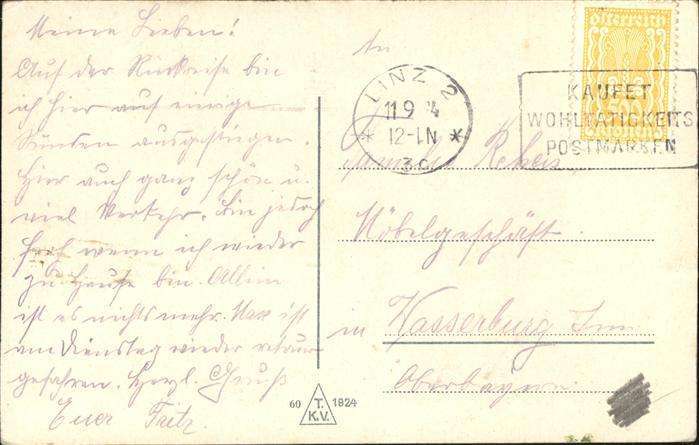 Meine Lieben!
Auf der Rückreise bin
ich hier auf einige
Stunden ausgestiegen.
Hier auch ganz schön u.
viel Verkehr. Bin jedoch
froh wenn ich wieder
zu Hause bin. Allein
ist es nichts mehr. Max ist
am Dienstag wieder retour
gefahren. Herzl. Gruß
Euer Fritz
An
Familie
Möbelgeschäft
in Wasserburg Inn
Oberbayern.
LINZ 2
11 9 24
12-1N
* 3c *
österreich
500
Kronen
KAUFET
WOHLTÄTIGKEITS
POSTMARKEN
60 T. K.V. 1824